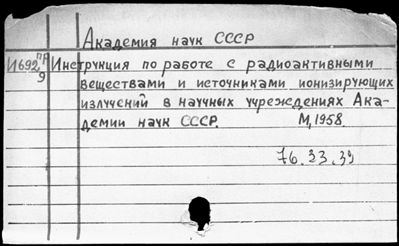 Академия наук СССР
И692 пр Инструкция по работе с радиоактивными
9 веществами и источниками ионизирующих
излучений в научных учреждениях Ака-
демии наук СССР. М, 1958.
76.33.39